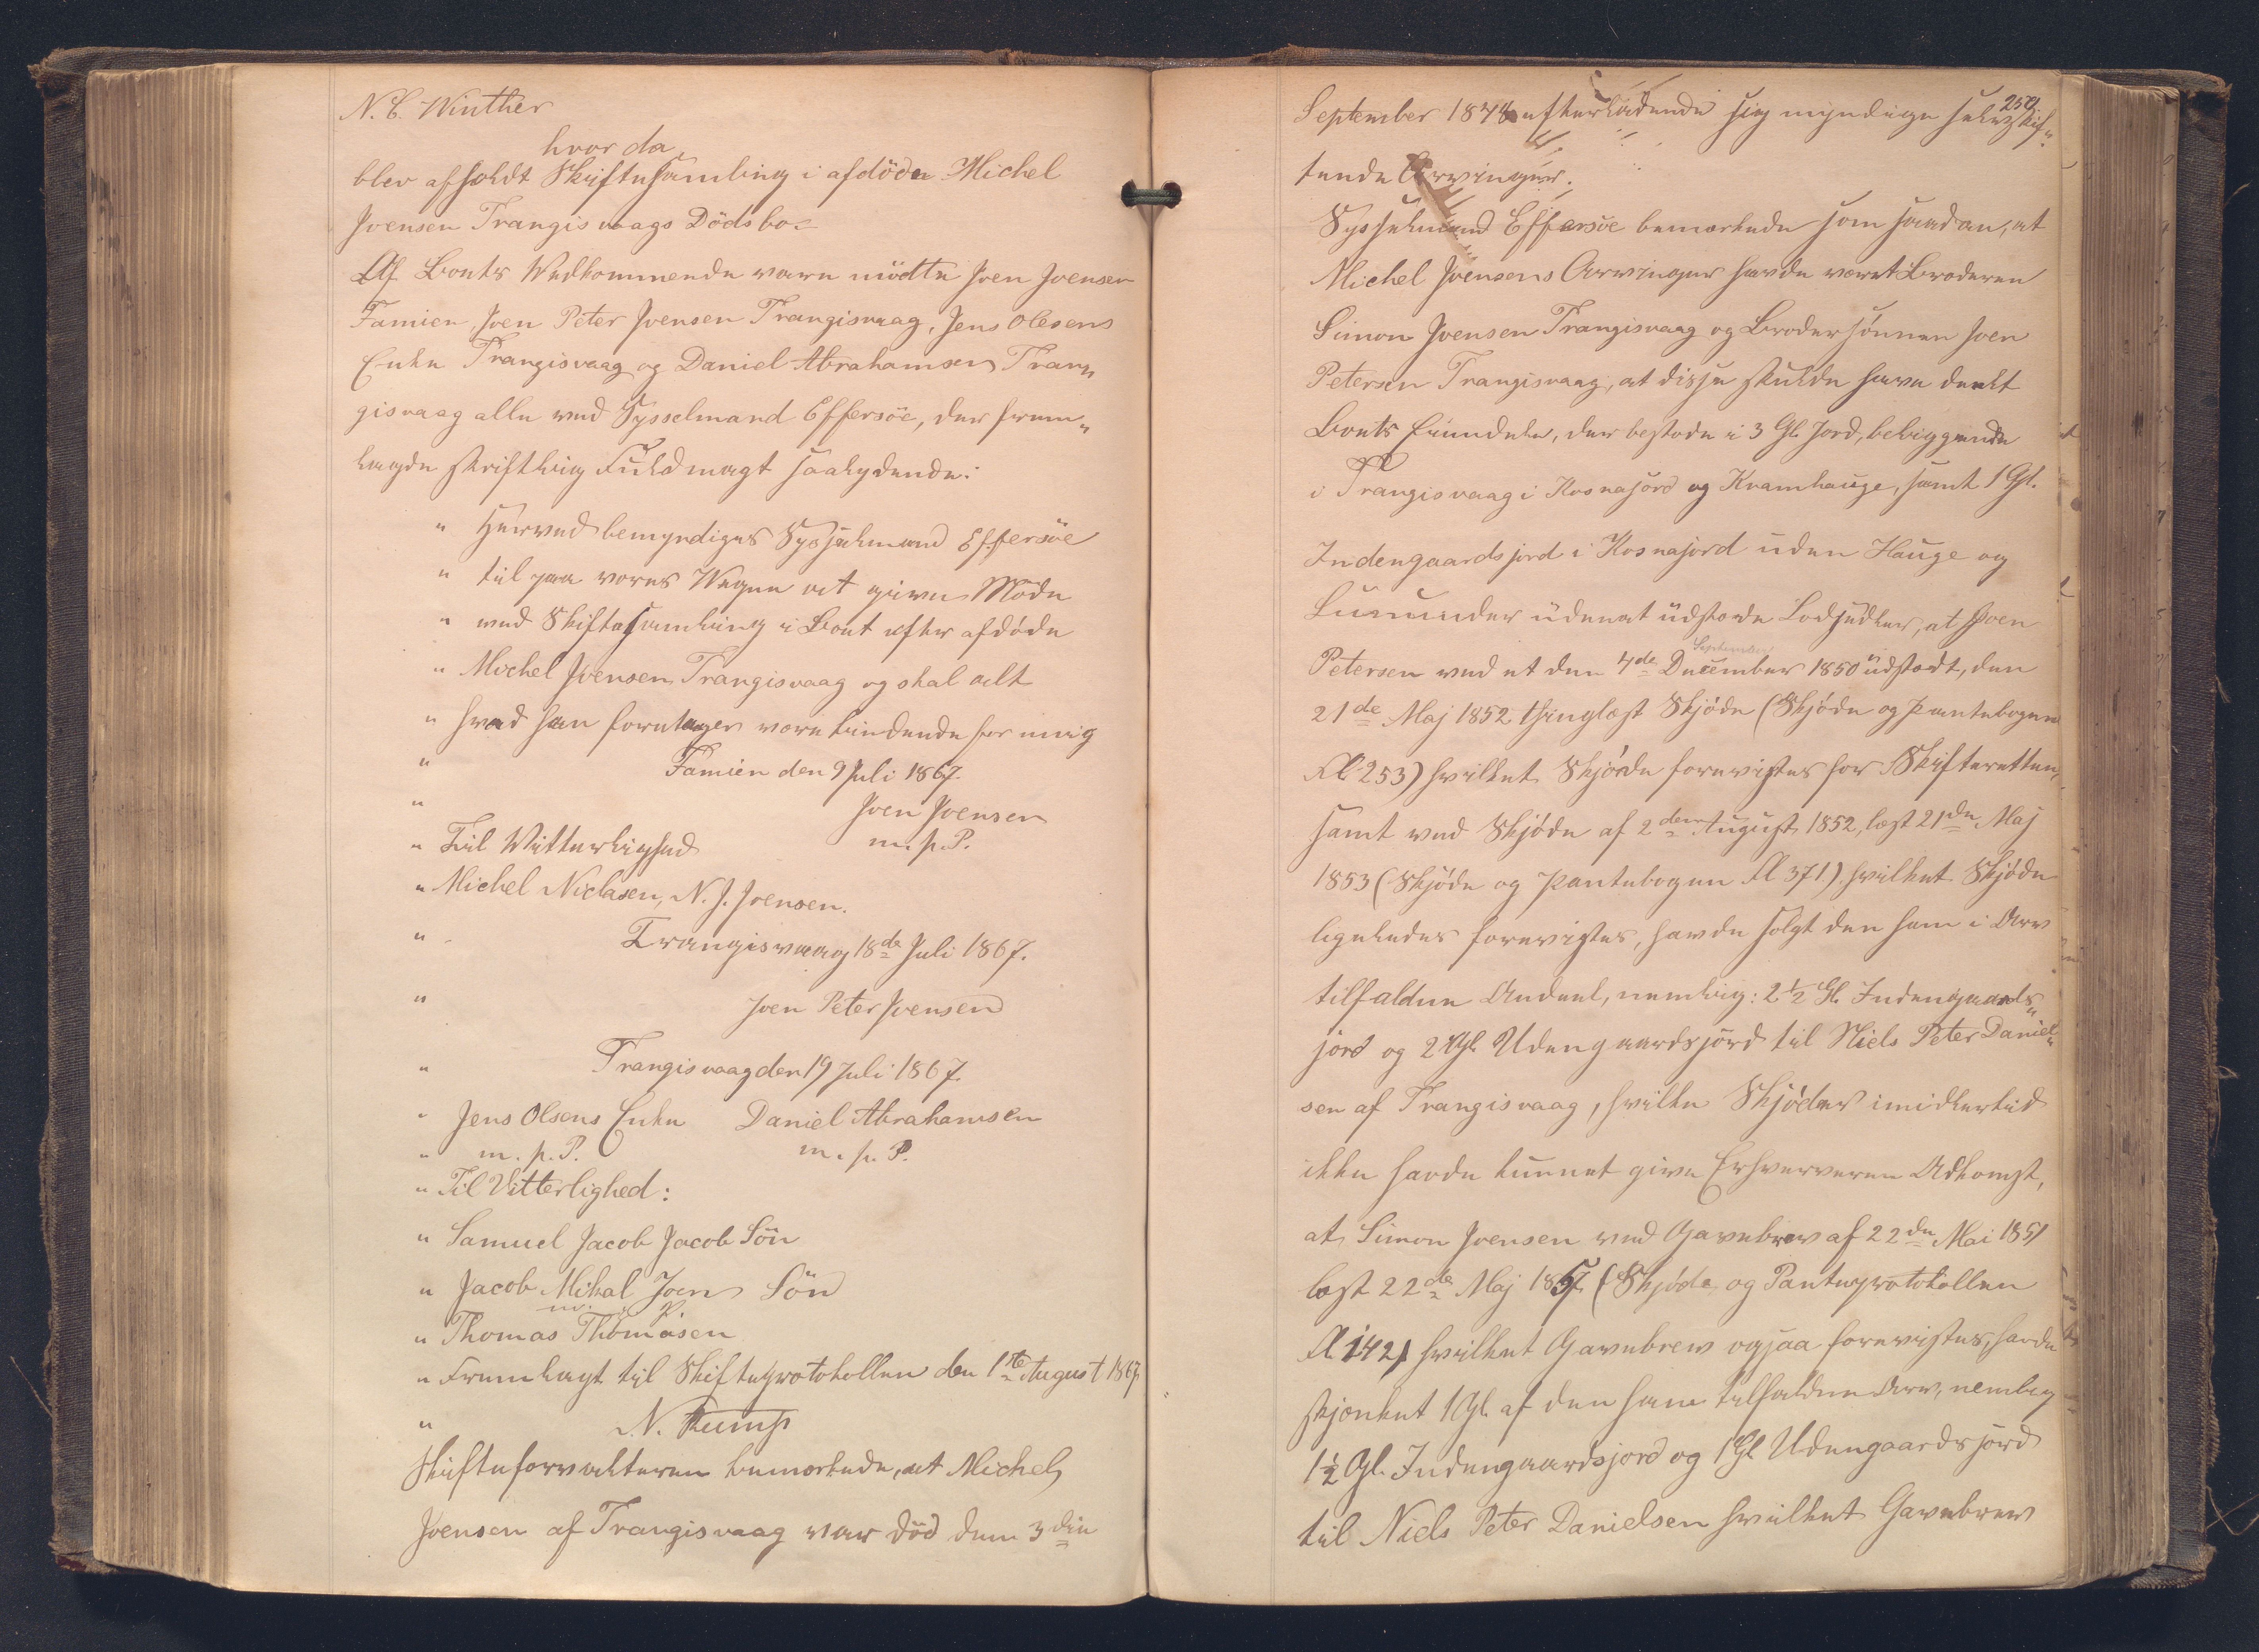 N. C. Winther
hvor da
blev afholdt Skiftesamling i afdøde Michel
Joensen Trangisvaags Dödsbo
Af Boets Vedkommende vare mödte Joen Joensen
Famien, Joen Peter Joensen Trangisvaag, Jens Olesens
Enke Trangisvaag og Daniel Abrahamsen Tran„
gisvaag alle ved Sysselmand Effersöe, der frem„
lagde skriftlig Fuldmagt saalydende:
" Herved bemyndiges Sysselmand Effersöe
" til paa vores Vegne at give Möde
" ved Skiftesamling i Boet efter afdöde
" Michel Joensen Trangisvaag og skal alt
" hvad han foretager være bindende for mig
" Famien den 9 Juli 1867.
" Joen Joensen
" Til Vitterlighed m. p. P.
" Michel Niclasen, N. J. Joensen.
" Trangisvaag 18de Juli 1867.
" Joen Peter Joensen
" Trangisvaag den 19 Juli 1867.
" Jens Olsens Enke Daniel Abrahamsen
" m. p. P. m. p. P.
" Til Vitterlighed:
" Samuel Jacob Jacob Sön
" Jacob Mikal Joen Sön
" Thomas Thomasen
" Fremlagt til Skifteprotokollen den 1ste August 1867
" N. Rump
Skifteforvalteren bemærkede, at Michel
Joensen af Trangisvaag var död den 3die
250
September 1848 efterladende sig myndige selvskif„
tende Arvinger.
Sysselmand Effersöe bemærkede som saadan, at
Michel Joensens Arvinger havde været Broderen
Simon Joensen Trangisvaag og Brodersönnen Joen
Petersen Trangisvaag, at disse skulde have deelt
Boets Eiendele, der bestode i 3 Gl. Jord, beliggende
i Trangisvaag i Kosnajord og Kvamhauge, samt 1 Gl.
Indengaardsjord i Kosnajord uden Hauge og
uden at udstede Lodsedler, at Joen
September
Petersen ved et den 4de December 1850 udstædt, den
21de Maj 1852 thinglæst Skjöde (Skjöde og Pantebogen
Fl 253) hvilket Skjöde forevistes for Skifteretten,
samt ved Skjöde af 2den August 1852, læst 21de Maj
1853 (Skjöde og Pantebogen Fl 371) hvilket Skjöde
ligeledes forevistes, havde solgt den ham i Arv
tilfaldne Andeel, nemlig: 2½ Gl. Indengaards„
jord og 2 Gl. Udengaardsjord til Niels Peter Daniel„
sen af Trangisvaag, hvilke Skjöder imidlertid
ikke havde kunnet give Erhververen Adkomst,
at Simon Joensen ved Gavebrev af 22de Mai 1851
læst 22de Maj 1857 (Skjöde og Panteprotokollen
Fl 142) hvilket Gavebrev ogsaa forevistes, havde
skjænket 1 Gl. af den ham tilfaldne Arv, nemlig
1½ Gl. Indengaardsjord og 1 Gl. Udengaardsjord
til Niels Peter Danielsen hvilket Gavebrev